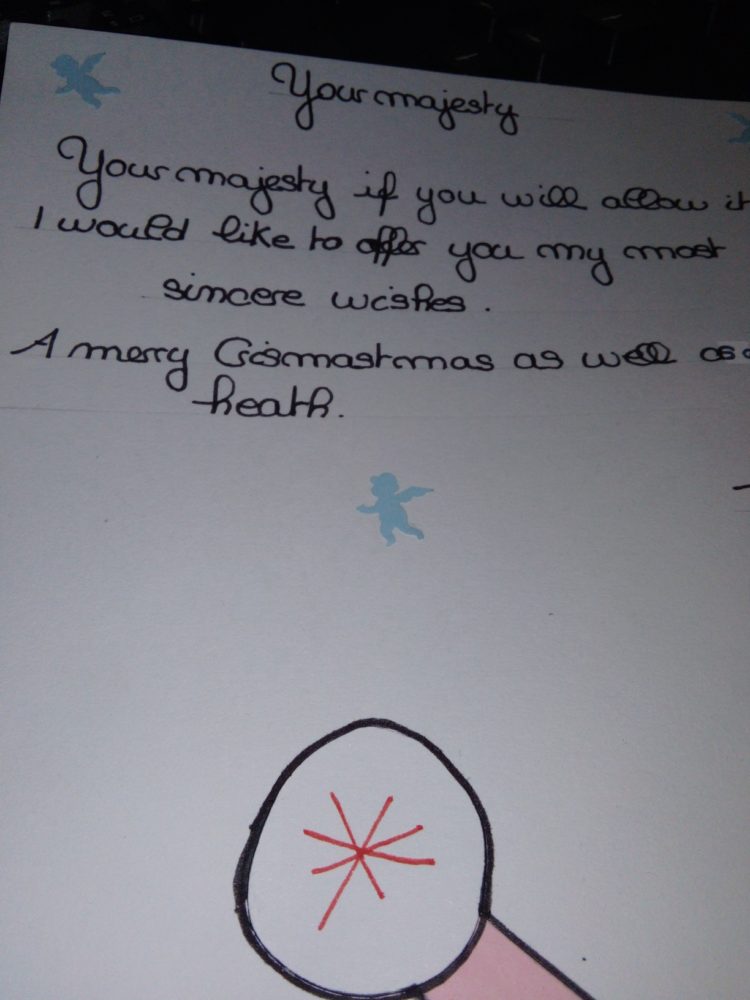 Your majesty
Your majesty if you will allow it
I would like to offer you my most
sincere wishes.
A merry Crismastmas as well as
heath.